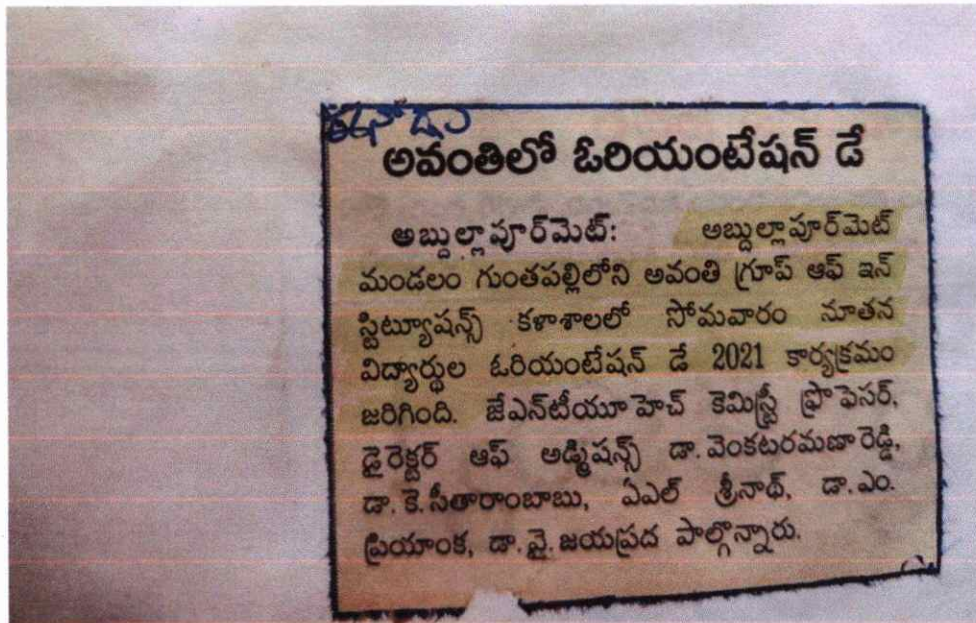 అవంతిలో ఓరియంటేషన్ డే
అబ్దుల్లాపూర్‌మెట్: అబ్దుల్లాపూర్‌మెట్
మండలం గుంతపల్లిలోని అవంతి గ్రూప్ ఆఫ్ ఇన్
స్టిట్యూషన్స్ కళాశాలలో సోమవారం నూతన
విద్యార్థుల ఓరియంటేషన్ డే 2021 కార్యక్రమం
జరిగింది. జేఎన్‌టీయూహెచ్ కెమిస్ట్రీ ప్రొఫెసర్,
డైరెక్టర్ ఆఫ్ అడ్మిషన్స్ డా.వెంకటరమణారెడ్డి,
డా.కె.సీతారాంబాబు, ఏఎల్ శ్రీనాథ్, డా.ఎం.
ప్రియాంక, డా.వై.జయప్రద పాల్గొన్నారు.